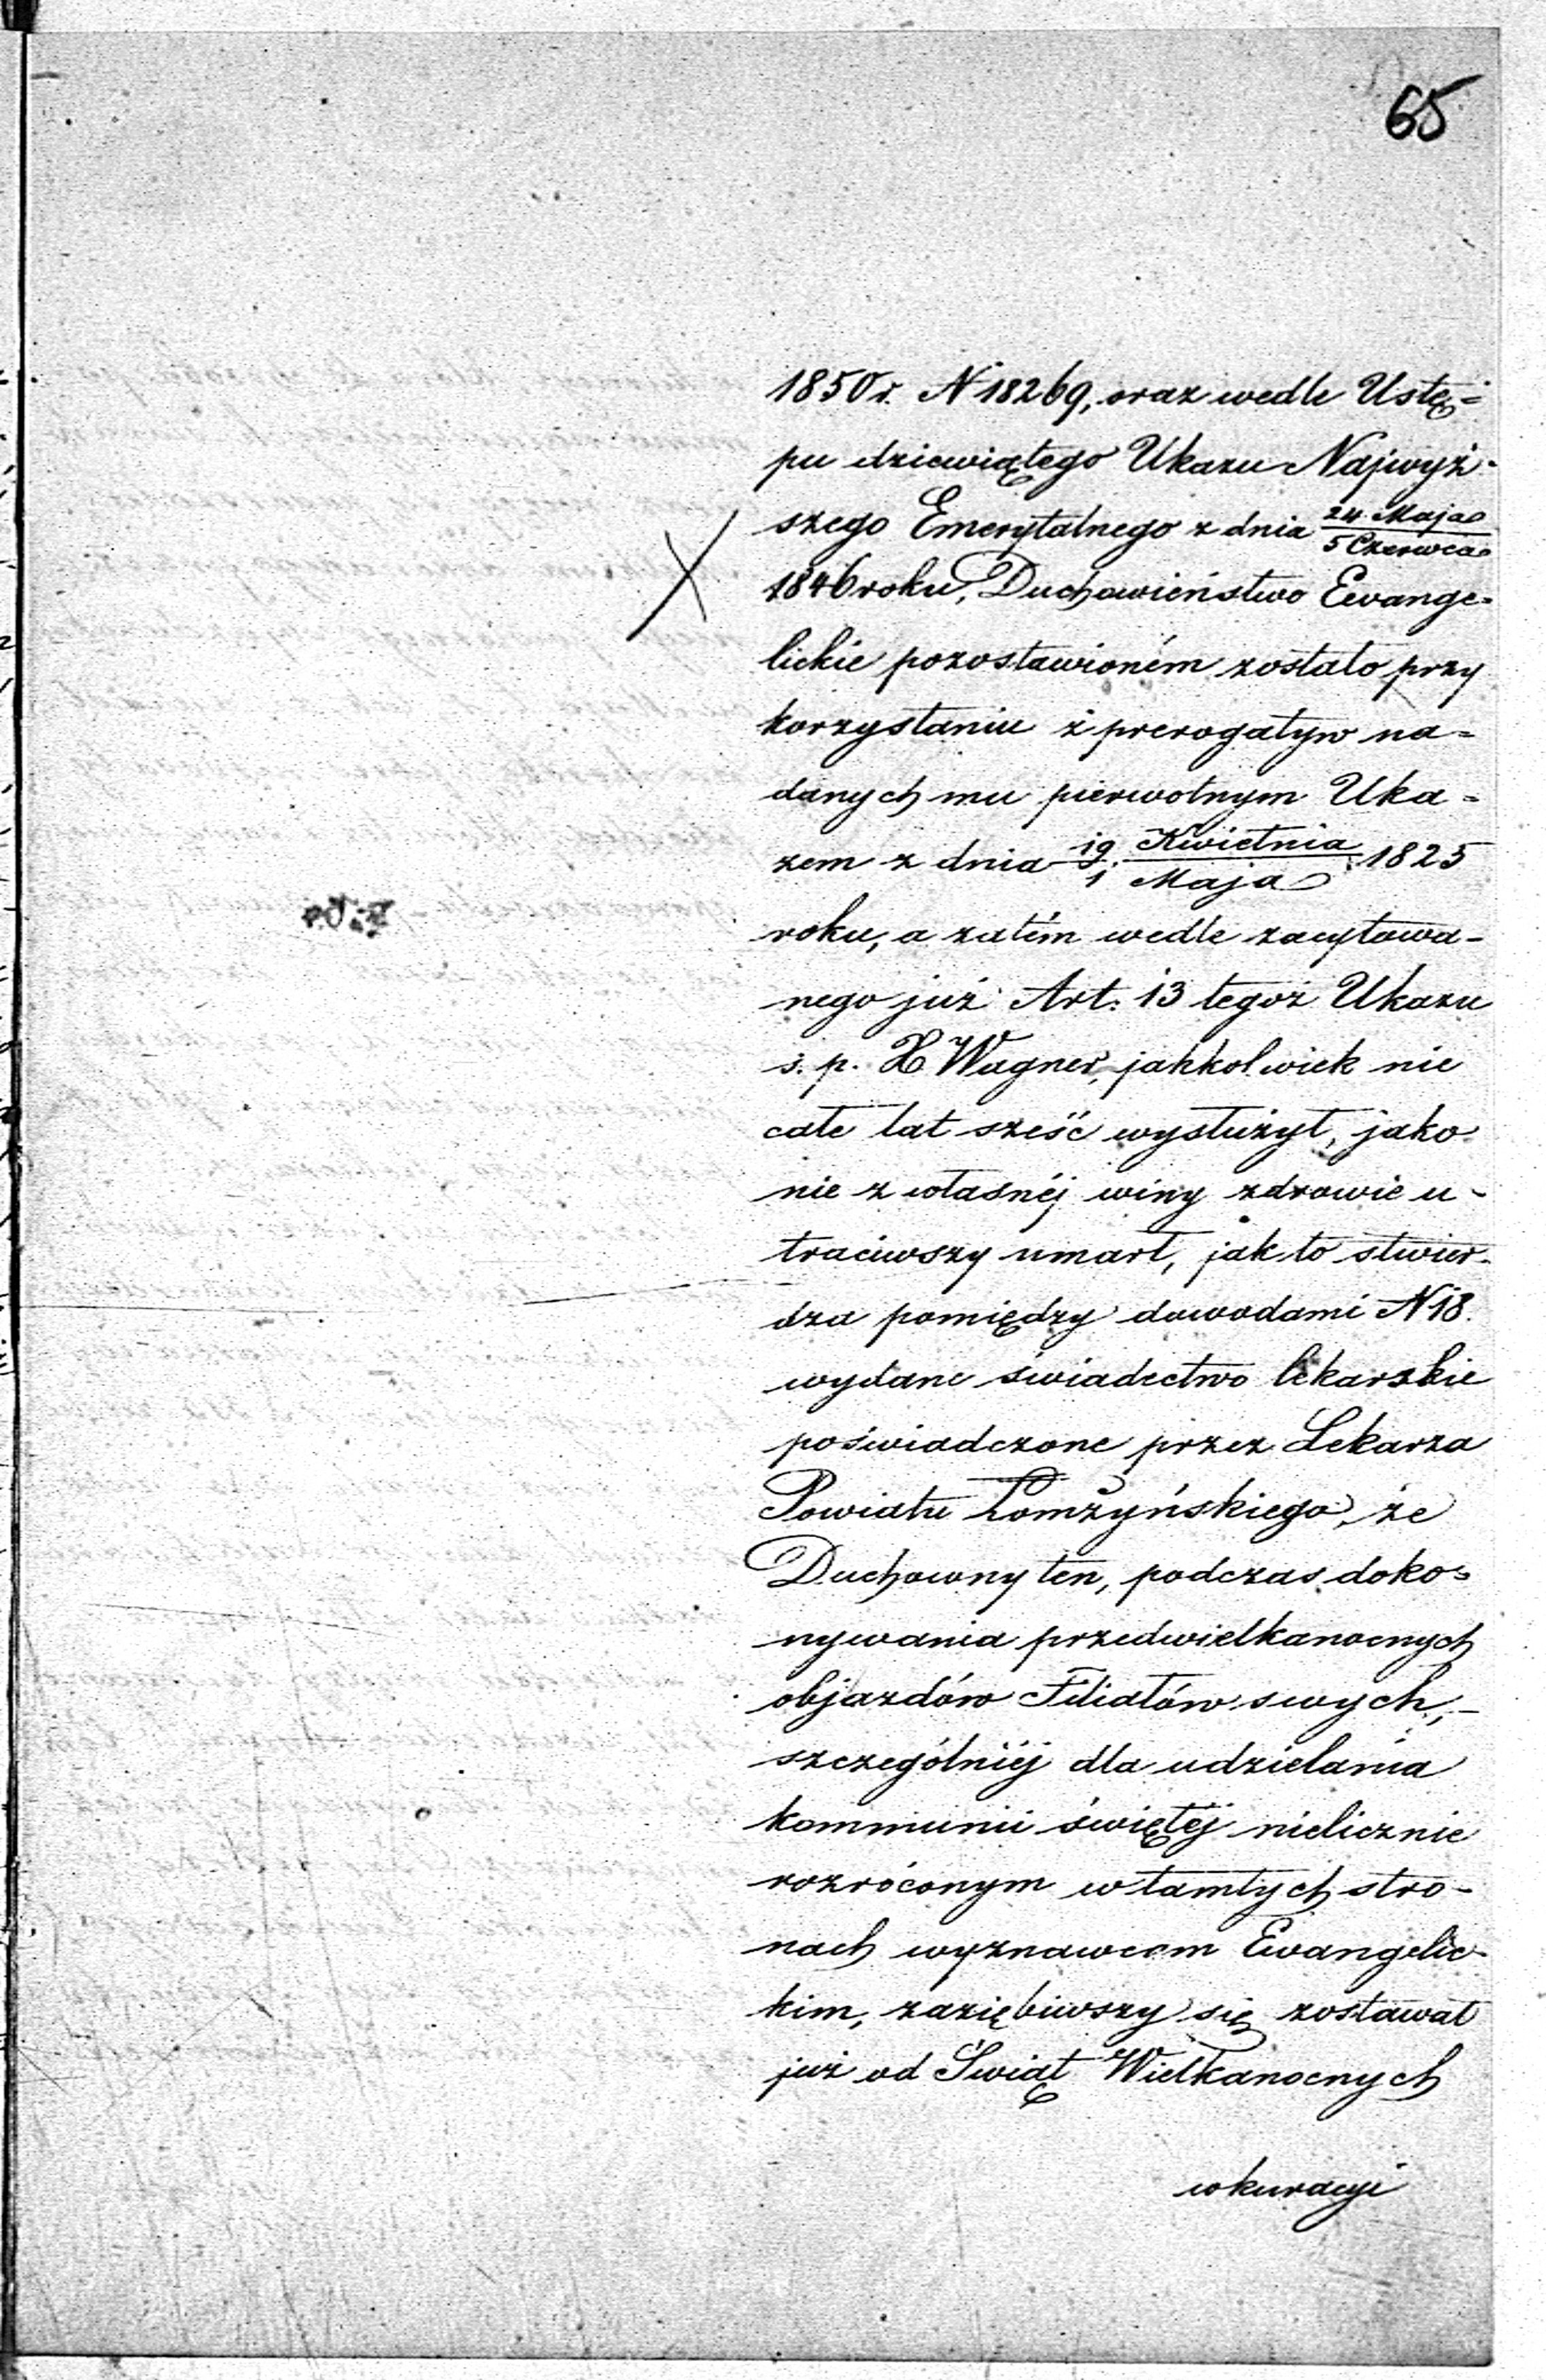 65
1850 r. N 18269, oraz wedle Ustę=
pu dziewiątego Ukazu Najwyż-
szego Emerytalnego z dnia 24 Maja / 5 Czerwca
1846 roku, Duchowieństwo Ewange=
lickie pozostawioném zostało przy
korzystaniu z prerogatyw na=
danych mu pierwotnym Uka=
zem z dnia 19/1 Kwietnia/Maja 1825
roku, a zatém wedle zacytowa-
nego już Art. 13 tegoż Ukazu
ś. p. X Wagner, jakkolwiek nie
całe lat sześć wysłużył, jako
nie z własnéj winy zdrowie u-
traciwszy umarł, jak to stwier-
dza pomiędzy dowodami N 18.
wydane świadectwo lekarskie
poświadczone przez Lekarza
Powiatu Łomżyńskiego, że
Duchowny ten, podczas doko=
nywania przedwielkanocnych
objazdów Filiałów swych,-
szczególniéj dla udzielania
kommunii świętéj nielicznie
rozróconym w tamtych stro-
nach wyznawcom Ewangelic-
kim, zaziębiwszy się zostawał
już od Świąt Wielkanocnych
w kuracyi